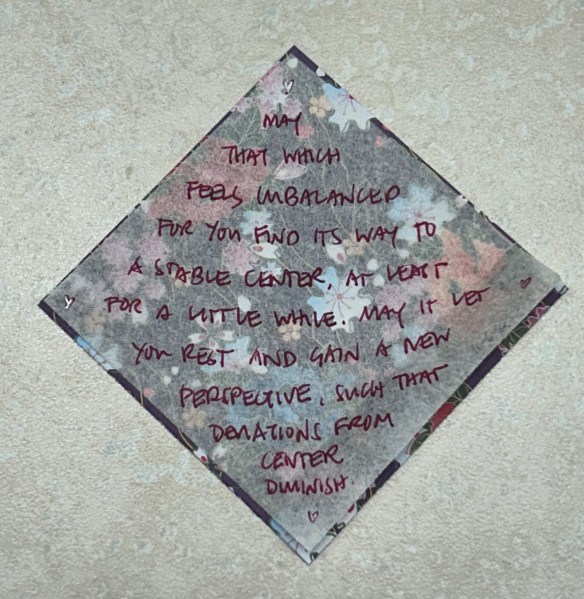 MAY
THAT WHICH
FEELS IMBALANCED
FOR YOU FIND ITS WAY TO
A STABLE CENTER, AT LEAST
FOR A LITTLE WHILE. MAY IT LET
YOU REST AND GAIN A NEW
PERSPECTIVE, SUCH THAT
DEVIATIONS FROM
CENTER
DIMINISH.